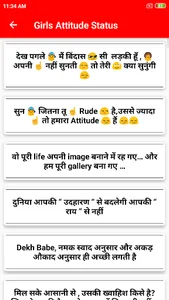 11:34 AM
Girls Attitude Status
देख पगले 👼 में बिंदास 😎 सी लड़की हूँ , 👩
अपनी ☝ नहीं सुनती 😊 तो तेरी 🙆 क्या सुनुंगी
😏
सुन 👼 जितना तू ☝ Rude 😏 है,उससे ज्यादा
तो हमारा Attitude 😏 है 😊😊
वो पूरी life अपनी image बनाने में रह गए… और
हम पूरी gallery बना गए…
दुनिया आपकी “ उदहारण ” से बदलेगी आपकी “
राय ” से नहीं
Dekh Babe, नमक स्वाद अनुसार और अकड़
औकाद अनुसार ही अच्छी लगती है
मिल सके आसानी से , उसकी ख्वाहिश किसे है?